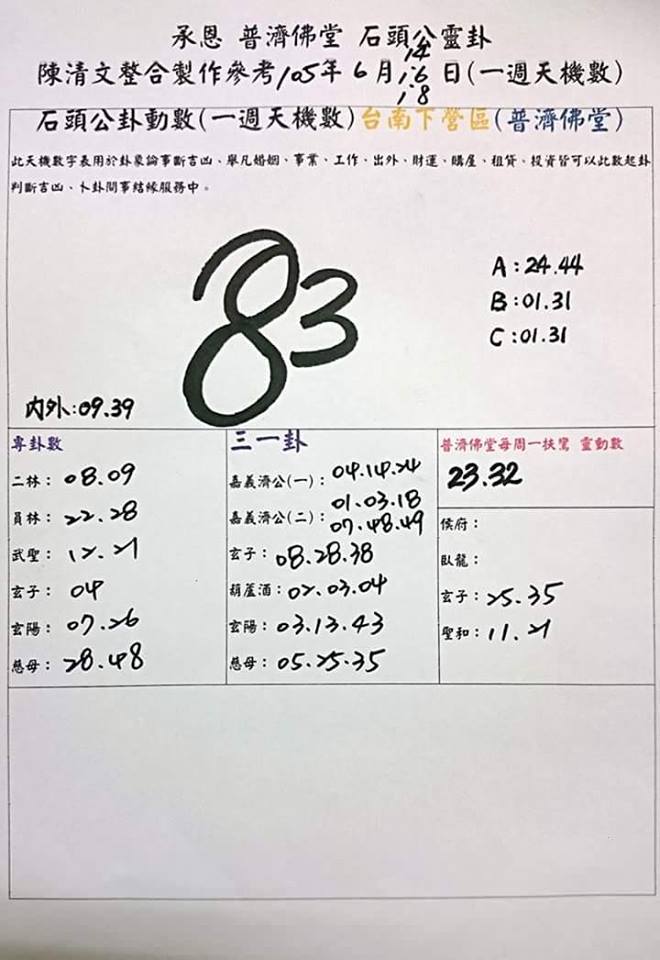 承恩 普濟佛堂 石頭公靈卦
14
陳清文整合製作參考105年6月16日(一週天機數)
18
石頭公卦動數(一週天機數)台南下營區(普濟佛堂)
此天機數字表用於卦象論事斷吉凶、舉凡婚姻、事業、工作、出外、財運、購屋、租貸、投資皆可以此數起卦
判斷吉凶、卜卦問事結緣服務中。
83
A:24.44
B:01.31
C:01.31
内外:09.39
專卦數
二林:08.09
員林:22.28
武聖:12.21
玄子:04
玄陽:07.26
慈母:28.48
三一卦
嘉義濟公(一):04.14.24
嘉義濟公(二):01.03.18
07.48.49
玄子:08.28.38
葫蘆酒:02.03.04
玄陽:03.13.43
慈母:05.25.35
普濟佛堂每周一扶鸞 靈動數
23.32
侯府:
臥龍:
玄子:25.35
聖和:11.21